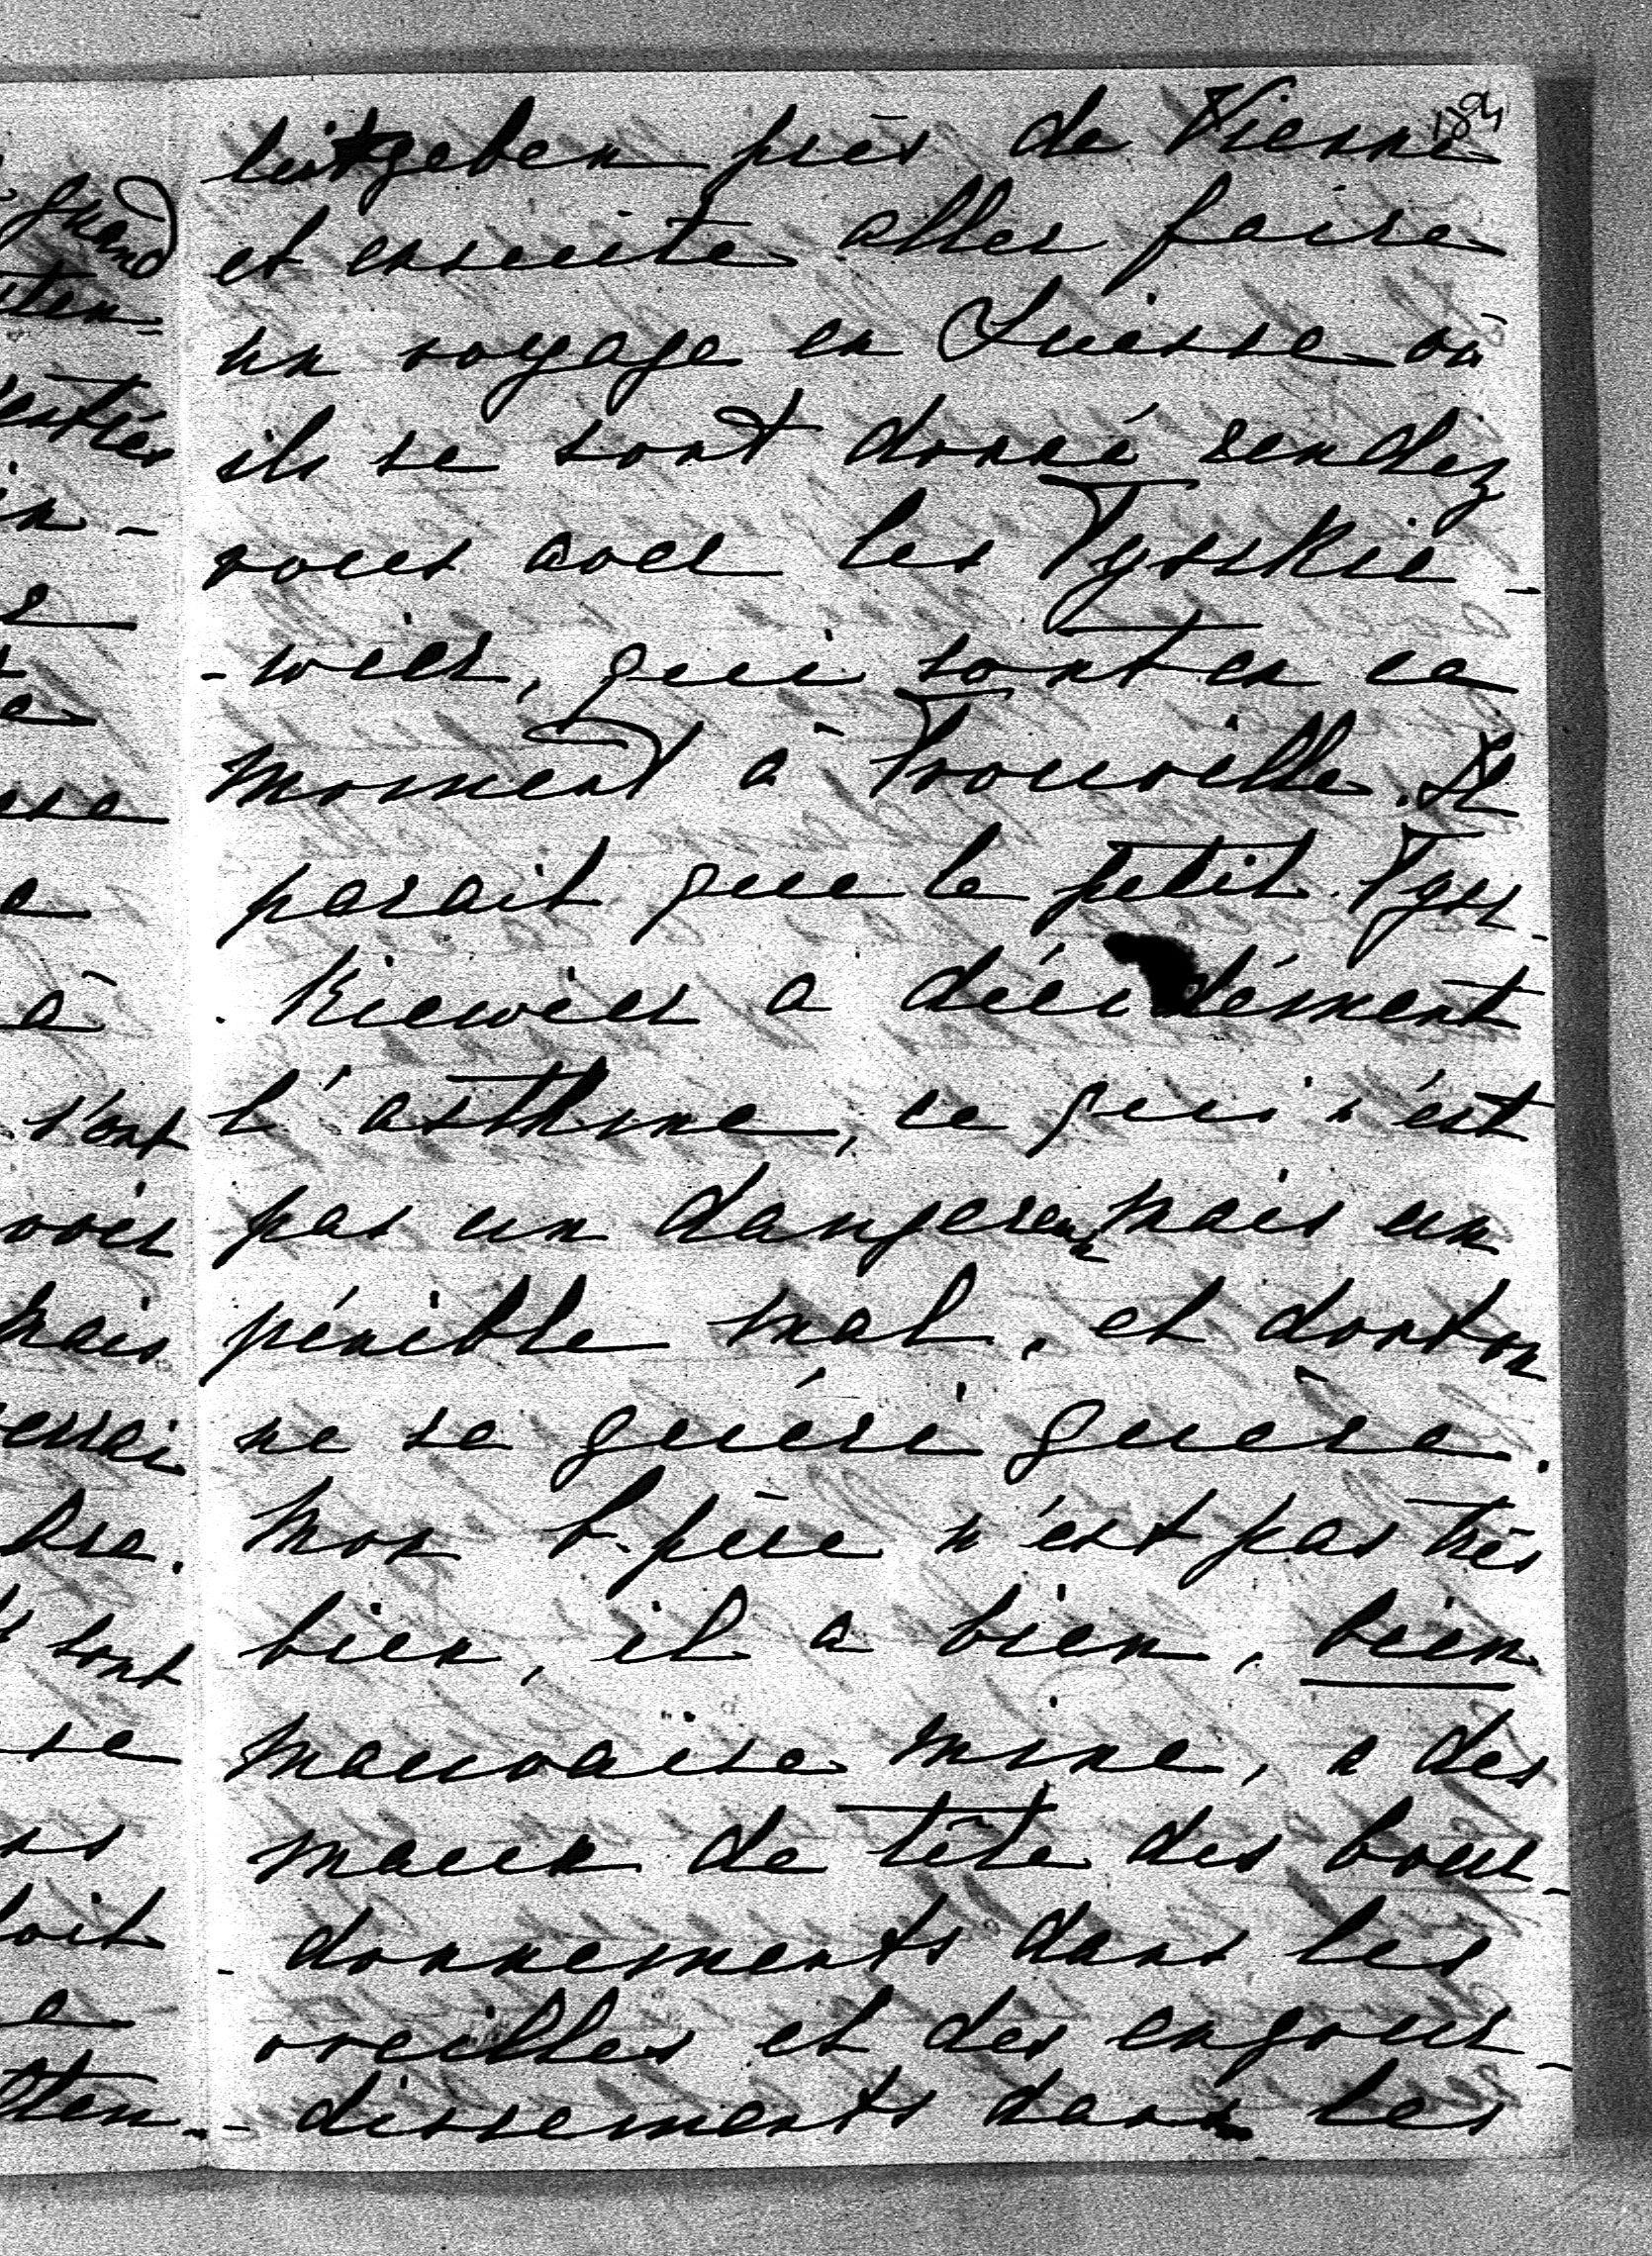 184
leutgeben près de Vienne
et ensuite aller faire
un voyage en Suisse où
ils se sont donné rendez
vous avec les Tysskie-
-wicz, qui sont en ce
moment à Trouville. Il
parait que le petit Tysz-
-kiewicz a décidément
l'asthme, ce qui n'est
pas un dangereux mais un
pénible mal, et dont on
ne se guérit guère.
Mon b-père n'est pas très
bien, il a bien, bien
mauvaise mine, a des
maux de tête des bour-
-donnements dans les
oreilles et des engour-
-dissements dans les